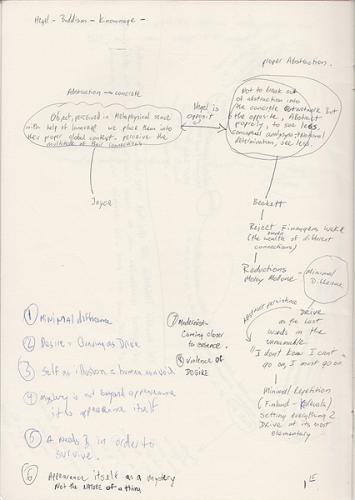 Hegel - Buddism - Knowledge -
proper Abstraction.
Abstraction → concrete
Object, perceived in Metaphysical sense
with help of
we place them into
their proper global context - perceive the
multitude of their connections
Hegel is
opposit
Not to break out
of abstraction into
the concrete
But
the opposite, Abstract
properly, to see less,
conceptual analysis, notional
determination, see less.
Joyce
Beckett
Reject Finnegans Wake
(the wealth of different
connections)
Reductions
Molloy Malone
Minimal
Difference
Abstract persistence
Drive
as the last
words in the
unnamable
"I don't know I can't
go on, I must go on
Minimal Repetition
setting everything 2
Drive at its most
elementary
① Minimal difference
② Desire - Cunning as Drive
③ Self as illusion & human as void
④ Mystery is not beyond appearance
it is appearance itself
⑤ A needs B in order to
survive.
⑥ Appearance itself as a mystery
Not the nature of a thing
⑦ Modernist-
Coming closer
to essence.
⑧ Violence of
Desire